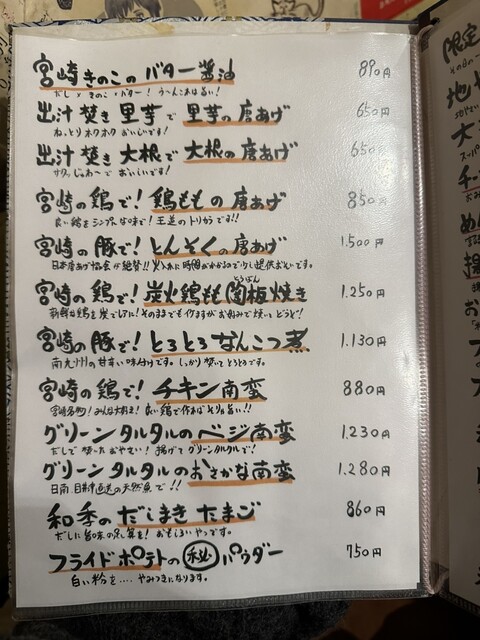 宮崎きのこのバター醤油 890円
だし×きのこ×バター！う〜んこれは旨い！
出汁焚き里芋で里芋の唐あげ 650円
ねっとりホクホクおいしいです！
出汁焚き大根で大根の唐あげ 650
サクッじゅわ〜でおいしいです！
宮崎の鶏で！鶏ももの唐あげ 850円
良い鶏をシンプルな味で！王道のトリからです!!
宮崎の豚で！とんそくの唐あげ 1,500円
日本唐あげ協会が絶賛!!火入れに時間がかかるので少し提供おそいです。
とうばん
宮崎の鶏で！炭火鶏もも陶板焼き 1,250円
新鮮な鶏を炭でレアに！そのままでも作りますがお好みで焼いてどうぞ！
宮崎の豚で！とろとろなんこつ煮 1,130円
南九州の甘辛い味付けです。しっかり焚いてとろとろです。
宮崎の鶏で！チキン南蛮 880円
宮崎名物！みんな大好き！良い鶏で作ればそりゃ旨い!!
グリーンタルタルのベジ南蛮 1,230円
だしで焚いたおやさい！揚げてグリーンタルタルで！
グリーンタルタルのおさかな南蛮 1,280円
日南 目井津直送の天然魚で!!
和季のだしまきたまご 860円
だしに旨味の足し算を！おもしろいやつです。
フライドポテトの㊙パウダー 750円
白い粉を....やみつきになります。
限定